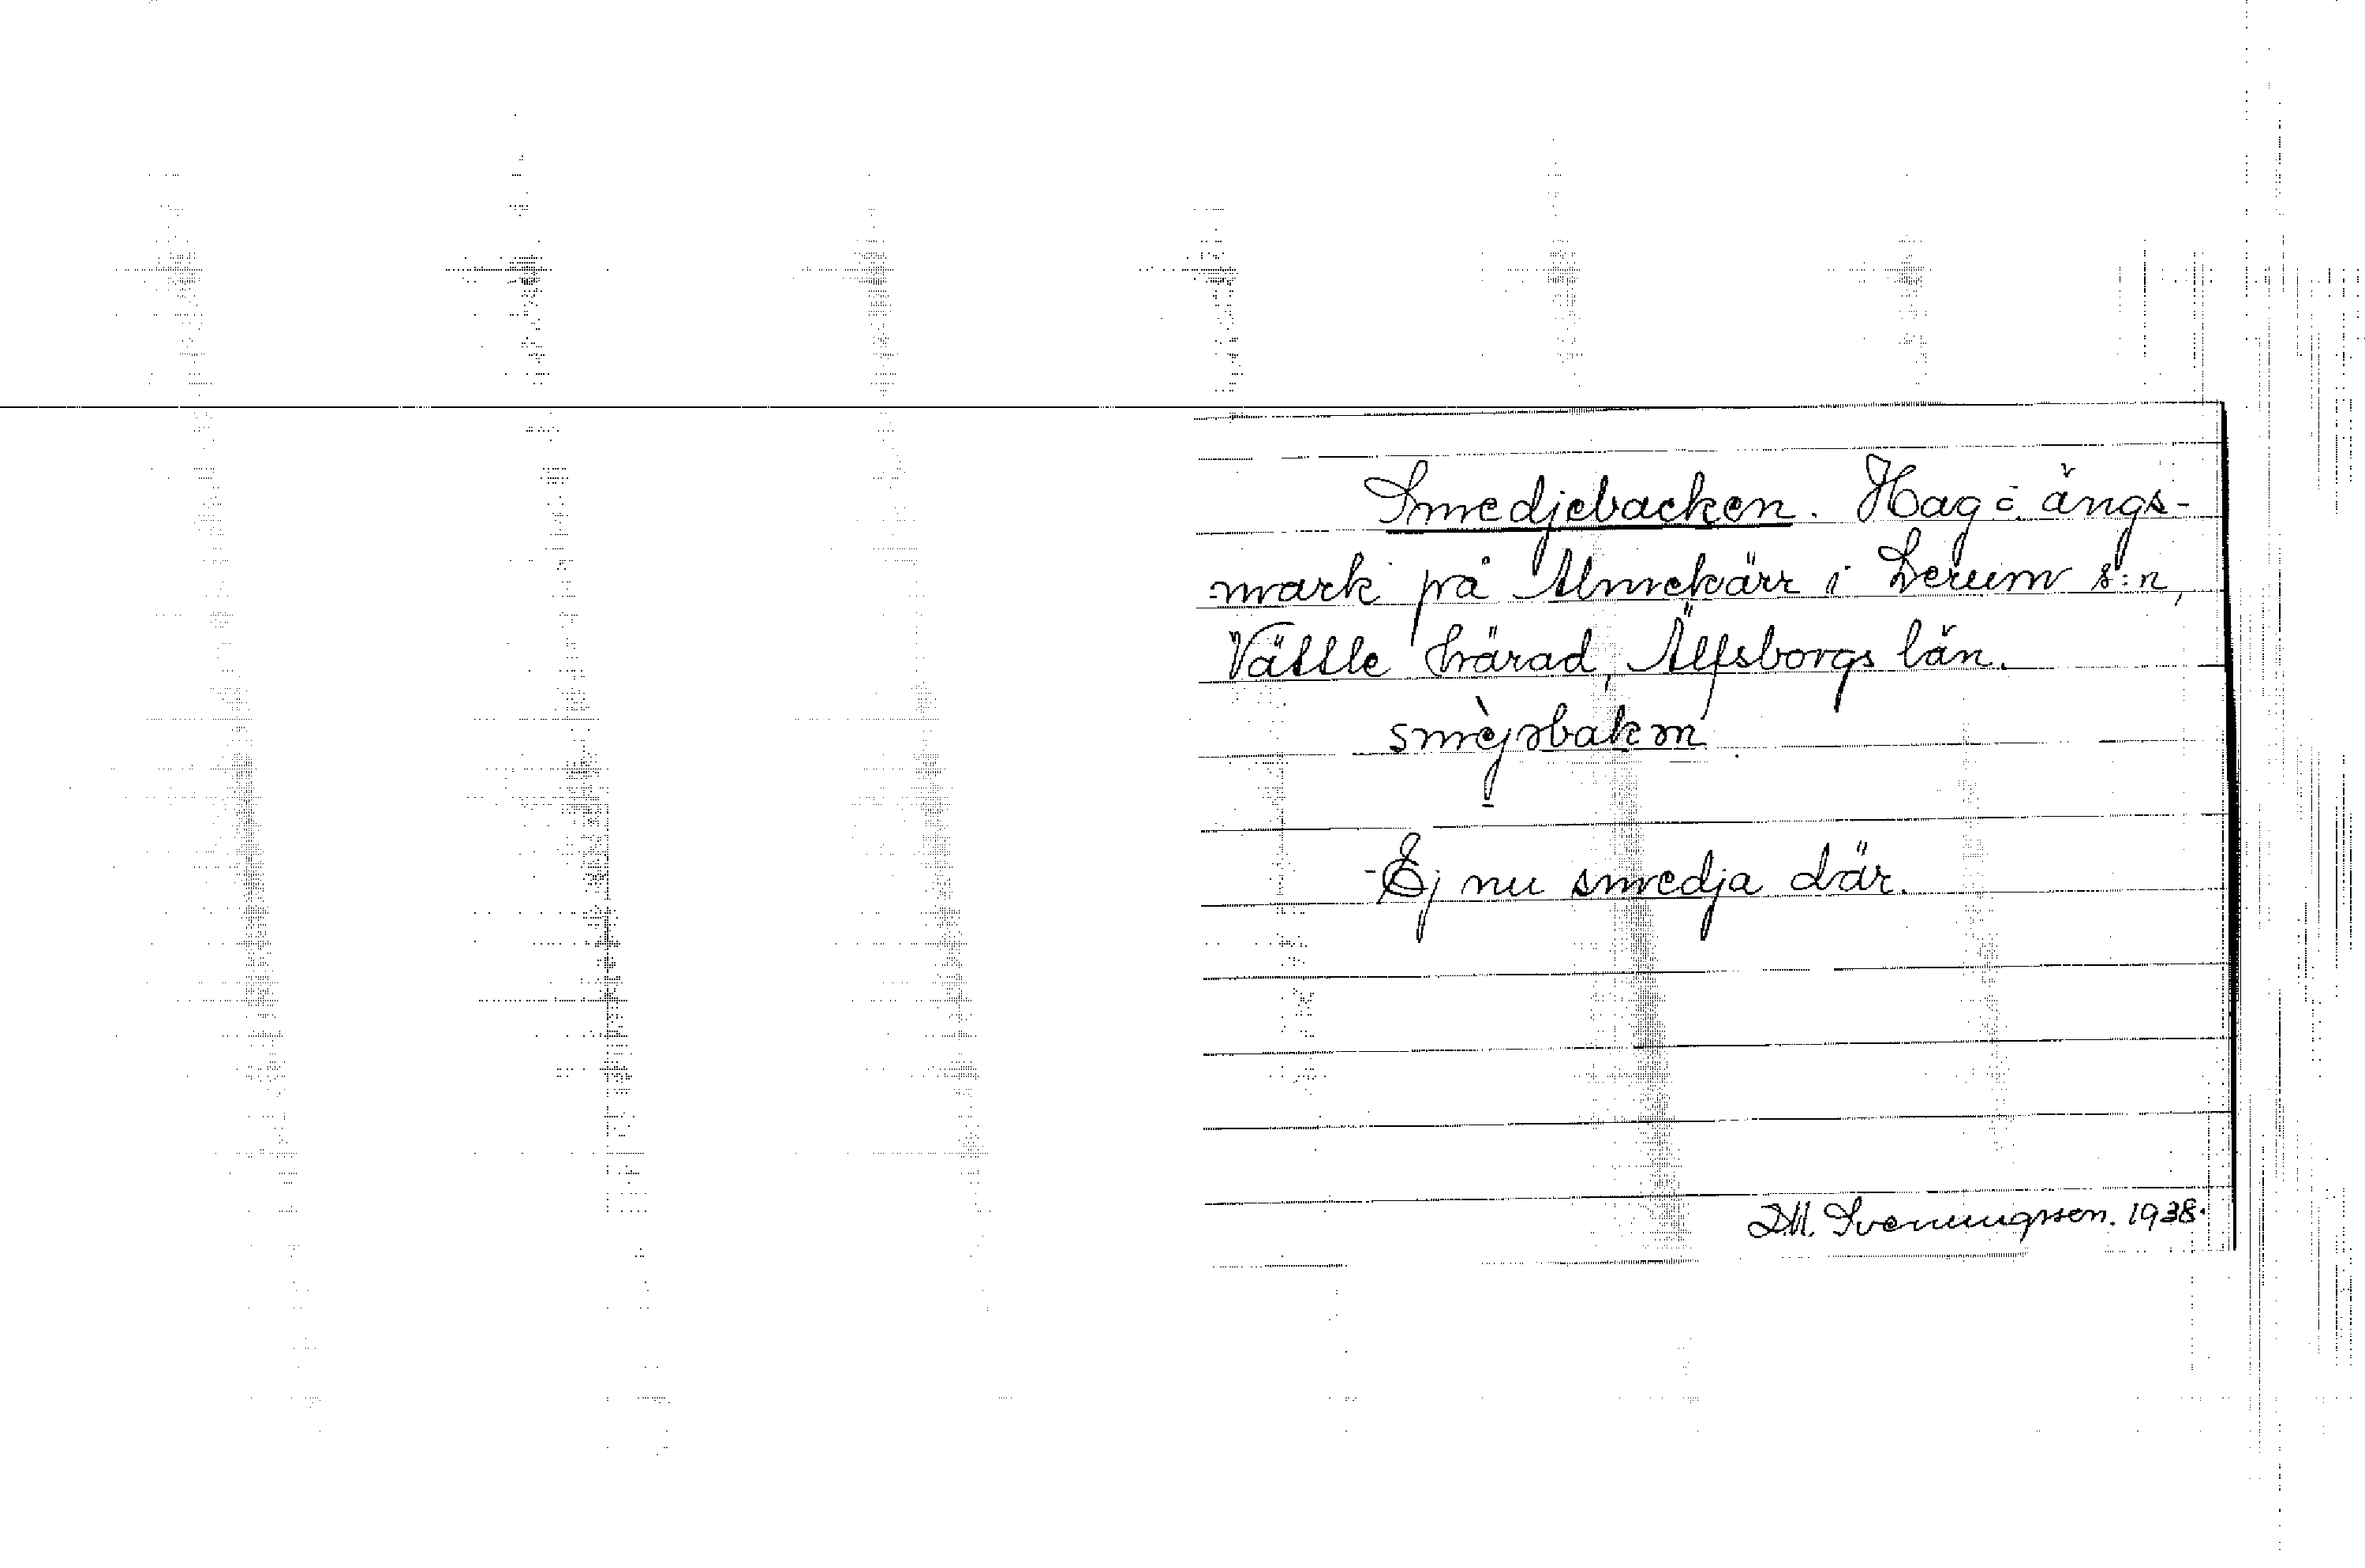 Smedjebacken. Hag o. ängs-
mark på Almekärr i Lerum s:n,
Vättle härad, Älfsborgs län.
Ej nu smedja där.
D.M. Sveningsson. 1938.